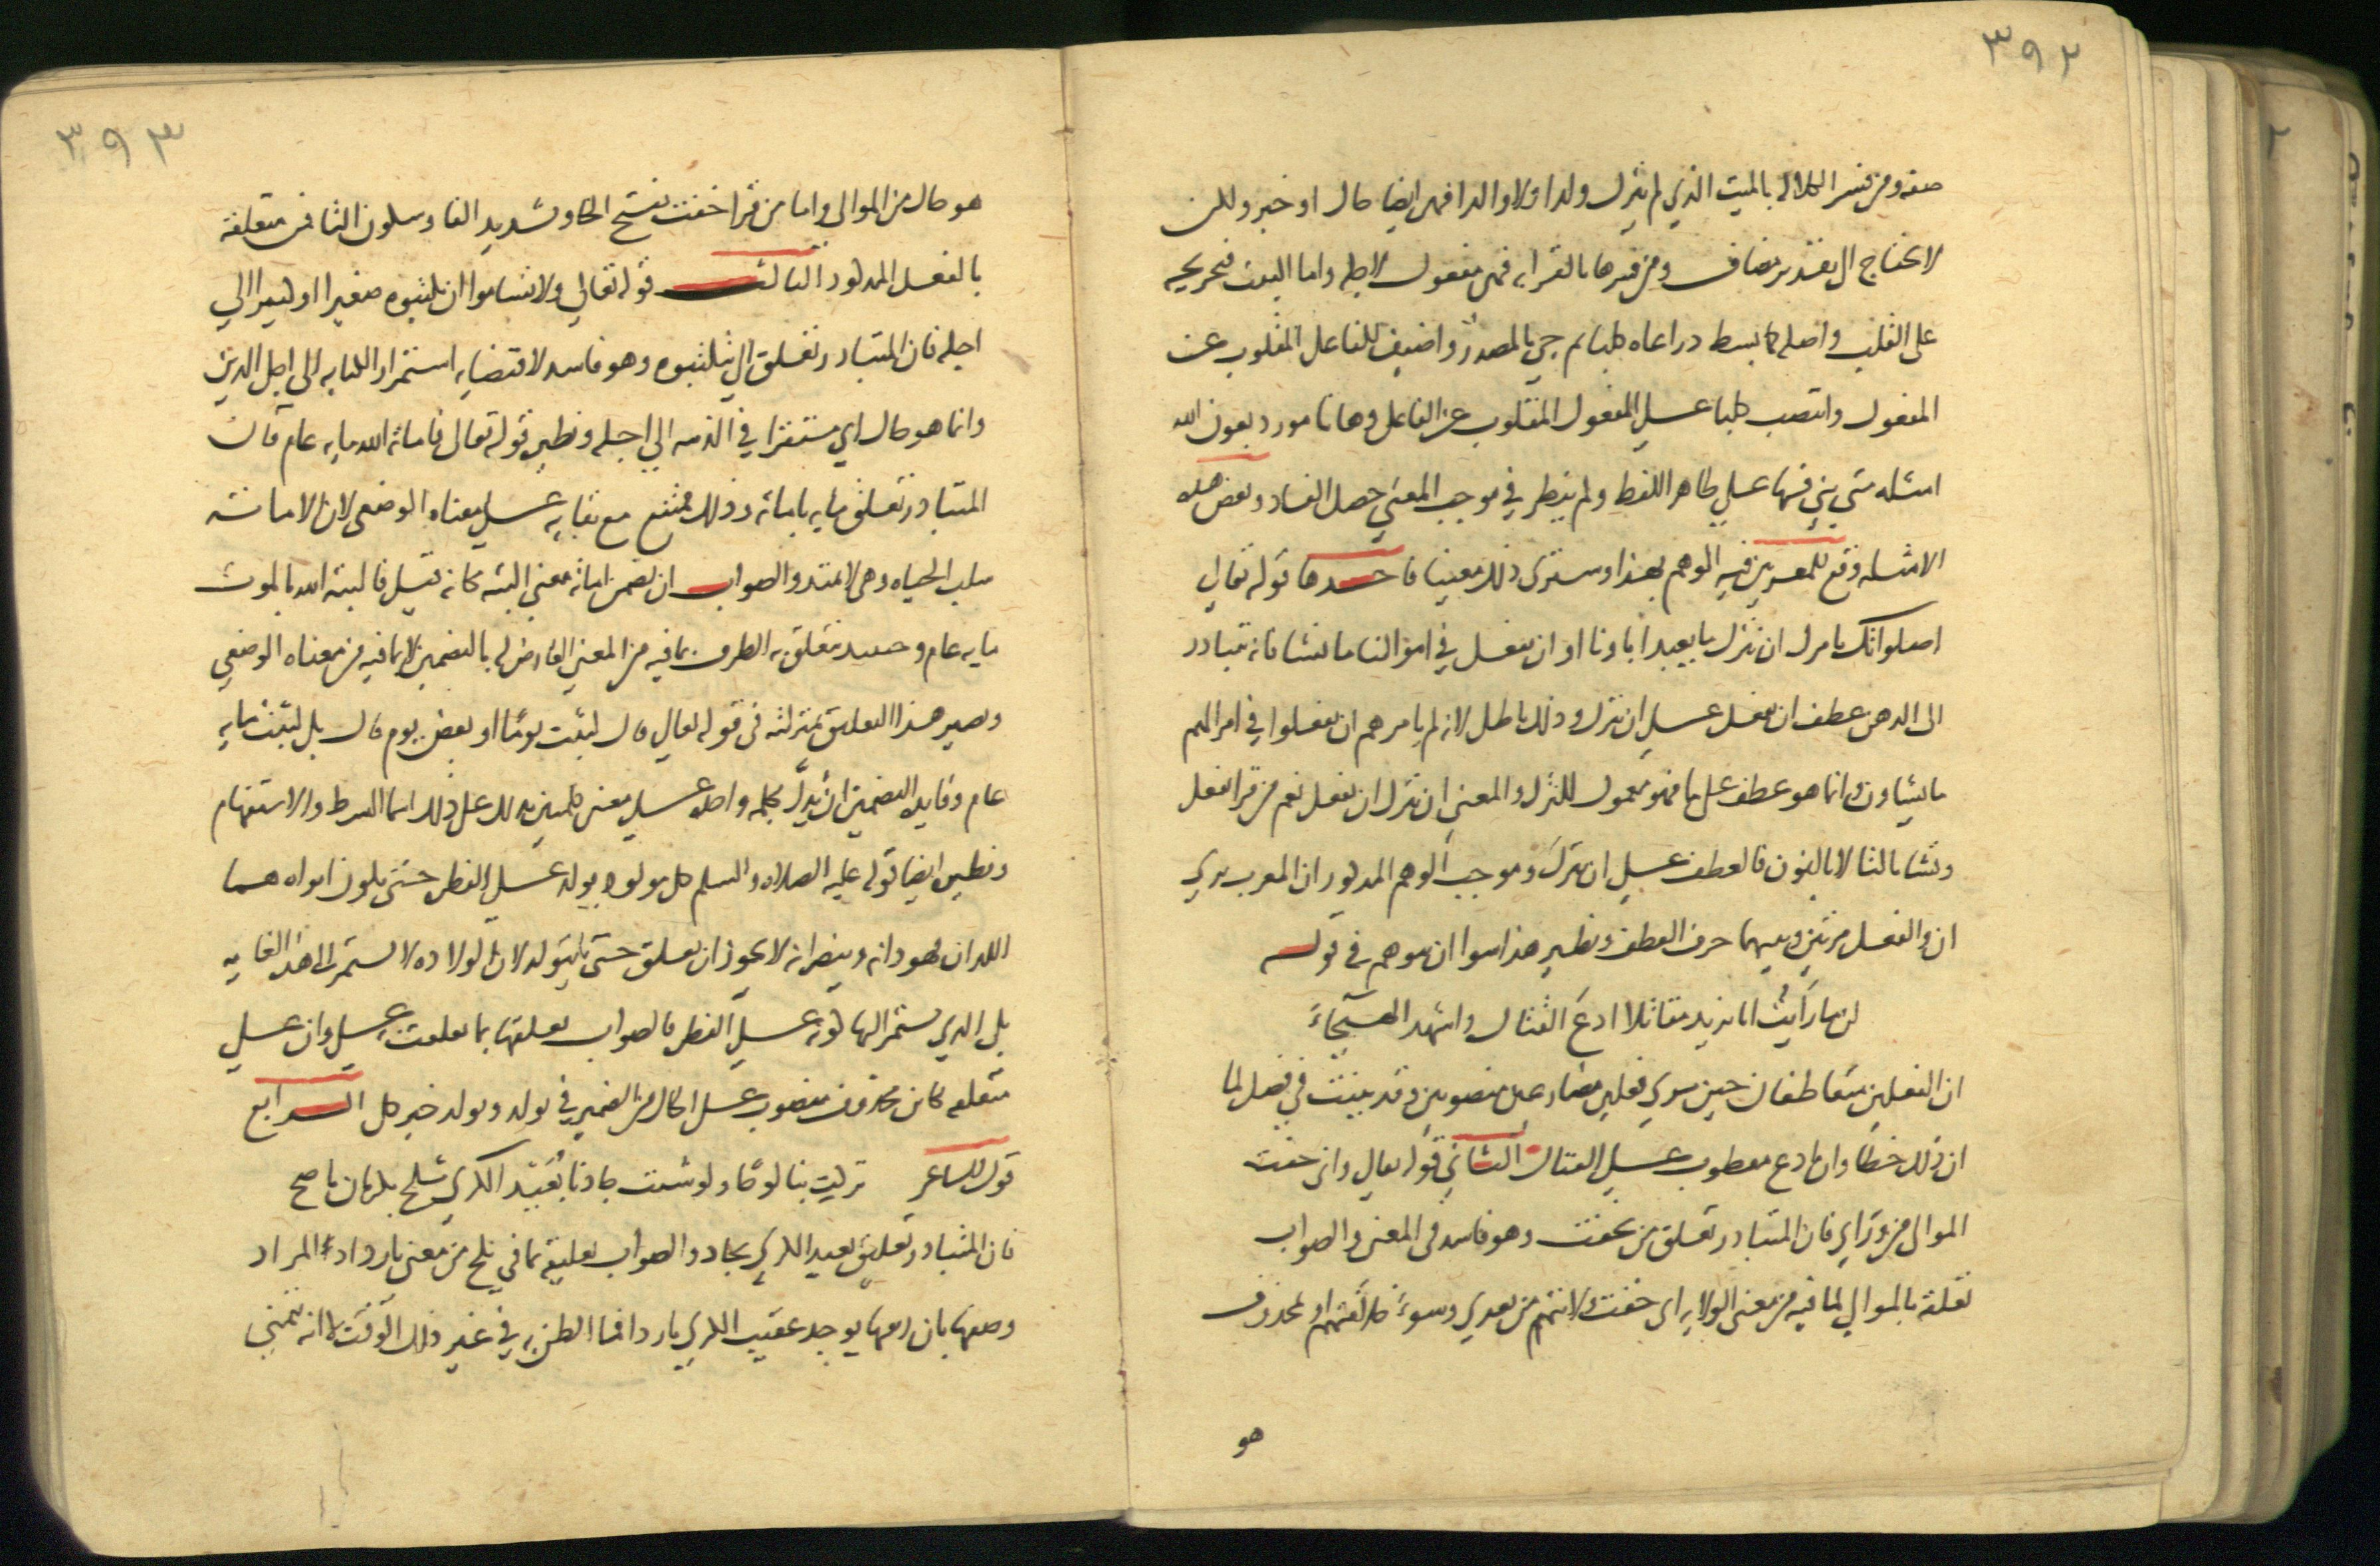 ٣٩٢
صفه ومن فسر الكلاله بالميت الذي لم يترك ولدا ولا والدا فهي ايضا حال او خبر ولكن
لا يحتاج الى تقدير مضاف ومن فسرها بالقرابه فهي مفعول لاجله واما البيت فتخريجه
على القلب واصله كما بسط ذراعاه كلبا ثم جي بالمصدر واضيف للفاعل المقلوب عن
المفعول وانتصب كلبا على المفعول المقلوب عن الفاعل وها انا مورد بعون الله
امثله متى بني فيها على ظاهر اللفظ ولم ينظر في موجب المعنى حصل الفساد وبعض هذه
الامثله وقع للمعربين فيه الوهم بهذا وسترى ذلك معينا فاحدها قوله تعالى
اصلواتك تامرك ان نترك ما يعبد اباونا او ان نفعل في اموالنا ما نشا فانه يتبادر
الى الذهن عطف ان نفعل على ان نترك وذلك باطل لانه لم يامرهم ان يفعلوا في اموالهم
ما يشاون وانما هو عطف على ما فهو معمول للترك والمعنى ان نترك ان نفعل نعم من قرا تفعل
وتشا بالتا لا بالنون فالعطف على ان نترك وموجب الوهم المذكور ان المعرب يرى
ان والفعل مرتين وبينهما حرف العطف ونظير هذا سوا ان يتوهم في قوله
لن ما رايت ابا يزيد مقاتلا ادع القتال واشهد الهيجاء
ان الفعلين متعاطفان حين يرى فعلين مضارعين منصوبين وقد بينت في فصل لما
ان ذلك خطا وان ادع معطوب على القتال الثاني قوله تعالى واني خفت
الموالي من وراي فان المتبادر تعلق من بخفت وهو فاسد في المعنى والصواب
تعلقه بالموالي لما فيه من معنى الولايه اي خفت ولايتهم من بعدي وسوء خلافتهم او بمحذوف
هو
٣٩٣
هو حال من الموالي واما من قرا خفت بفتح الخا وتشديد الفا وسكون التا فمن متعلقة
بالفعل المذكور الثالث قوله تعالى ولا تساموا ان تكتبوه صغيرا او كبيرا الى
اجله فان المتبادر تعلق الى بتكتبوه وهو فاسد لاقتضايه استمرار الكتابه الى اجل الدين
وانما هو حال اي مستقرا في الذمه الى اجله ونظيره قوله تعالى فاماته الله مايه عام فان
المتبادر تعلق مايه باماته وذلك ممتنع مع بقايه على معناه الوضعي لان الاماته
سلب الحياه وهي لا تمتد والصواب ان يضمن اماته معنى البثه فكانه قيل فالبثه الله بالموت
مايه عام وحينيذ يتعلق به الظرف بما فيه من المعنى العارض له بالتضمين لا بما فيه من معناه الوضعي
ويصير هذا التعليق بمنزلته في قوله تعالى قال لبثت يوما او بعض يوم قال بل لبثت مايه
عام وفايده التضمين ان يدل بكلمه واحده على معنى كلمتين يدلك على ذلك اسما الشرط والاستفهام
ونظيره ايضا قوله عليه الصلاه والسلم كل مولود يولد على الفطره حتى يكون ابواه هما
اللذان يهودانه وينصرانه لا يجوز ان يعلق حتى بيولد لان الولاده لا تستمر الى هذه الغايه
بل الذي يستمر اليها كونه على الفطره فالصواب تعليقها بما تعلقت به على وان على
متعلقه بكاين محذوف منصوب على الحال من الضمير في يولد ويولد خبر كل الرابع
قول الشاعر تركت بنا لوحا ولو شيت جادنا بعيد الكرى ثلج بكرمان ناصح
فان المتبادر تعليق بعيد الكرى بجاد والصواب تعليقه بما في ثلج من معنى بارد اذ المراد
وصفها بان ريقها يوجد عقيب الكرى باردا فما الظن به في غير ذلك الوقت لا انه يتمنى